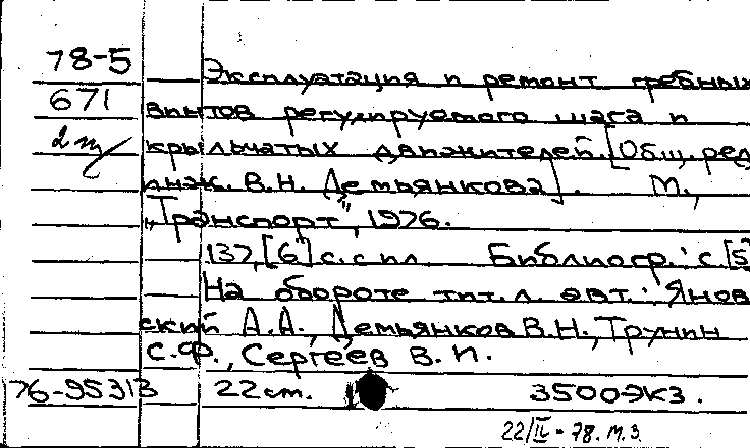 78-5 Эксплуатация и ремонт гребных
671 винтов регулируемого шага и
2 т/ крыльчатых движителей. [Общ. ред.
инж. В.Н. Демьянкова]. М.,
„Транспорт", 1976.
137, [6] с. с ил. Библиогр.: с [5
На обороте тит. л. авт.: Янов-
ский А.А., Демьянков В.Н., Трунин
С.Ф., Сергеев В.И.
76-95313 22 см. 3500 экз.
22/II - 78. М.З.